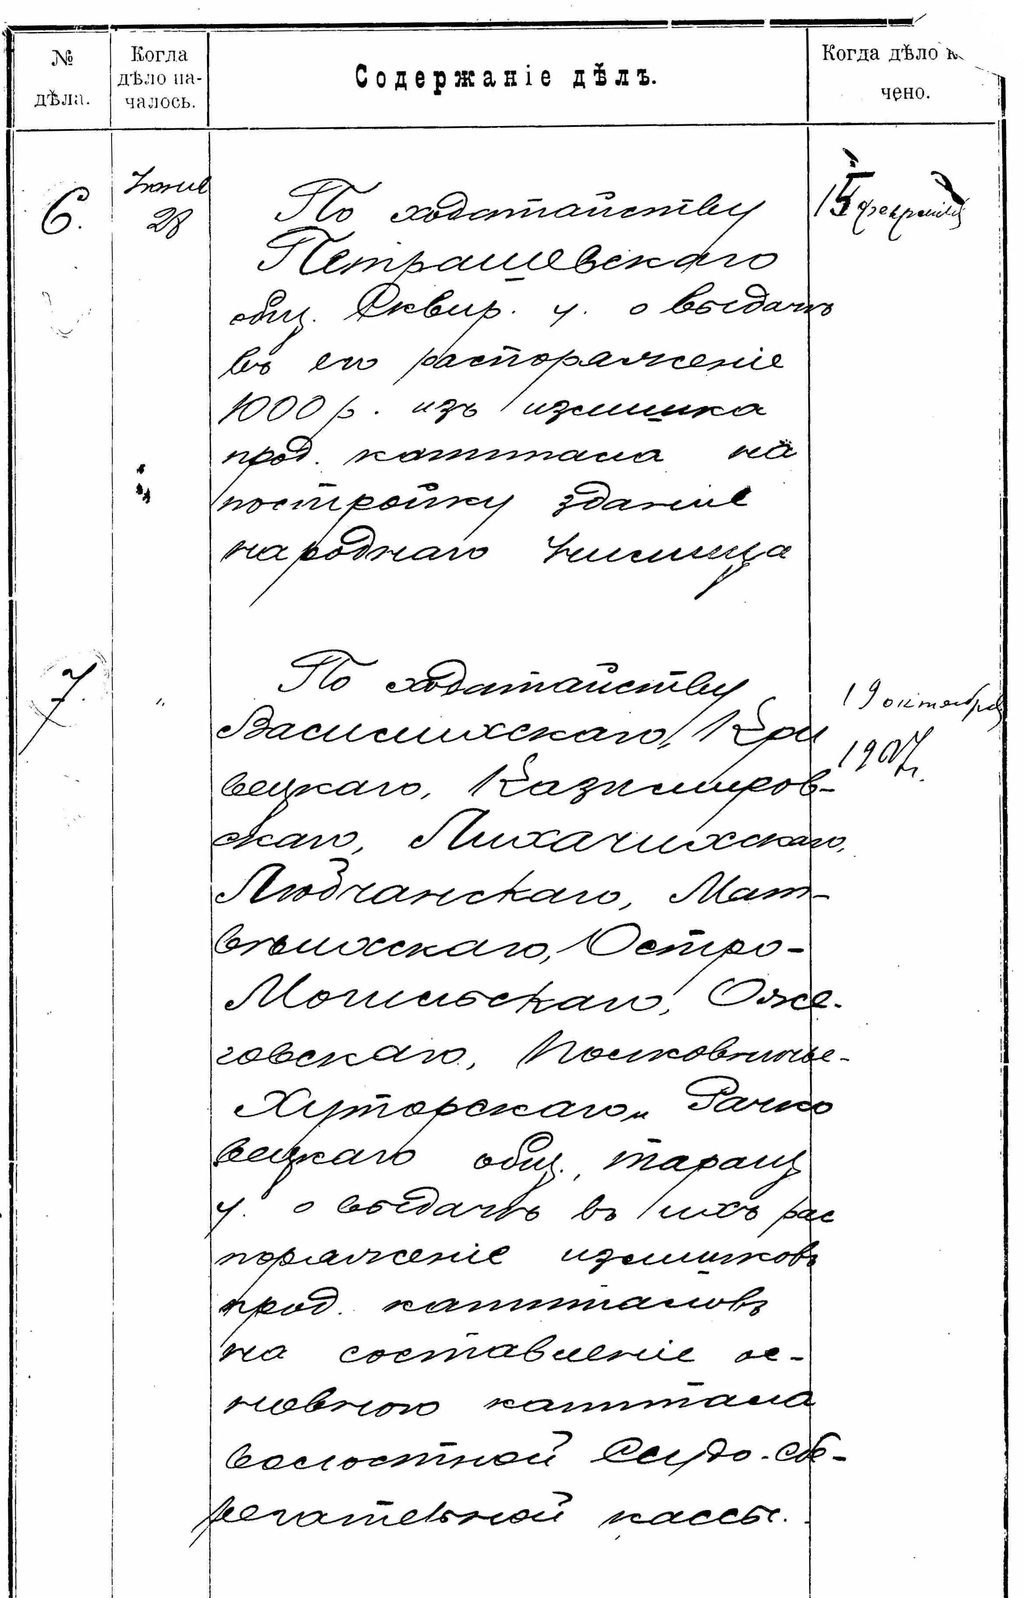 № дѣла.
Когда дѣло на-
чалось.
Содержаніе дѣлъ.
Когда дѣло
чено.
6.
Іюнь
28
По ходатайству
Петрашевскаго
общ. Сквир. у. о выдачѣ
въ его распоряженіе
1000 р. изъ излишка
прод. капитала на
постройку зданіе
народнаго училища
15 февраля
7.
"
По ходатайству
Василихскаго, Кри
вецкаго, Казимиров-
скаго, Лихачихскаго,
Любчанскаго, Мат-
вѣихскаго, Остро-
Могильскаго, Оже-
говскаго, Полковничье-
Хуторскаго и Рачко
вецкаго общ. Таращ
у. о выдачѣ въ ихъ рас
поряженіе излишковъ
прод. капиталовъ
на составленіе ос-
новного капитала
волостной Ссудо-сбе-
регательной кассы.
19 октября
1907 г.